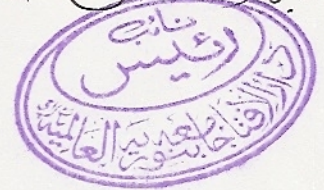 نائب
رئيس
دار الافتا جامعه نوريه العالميه